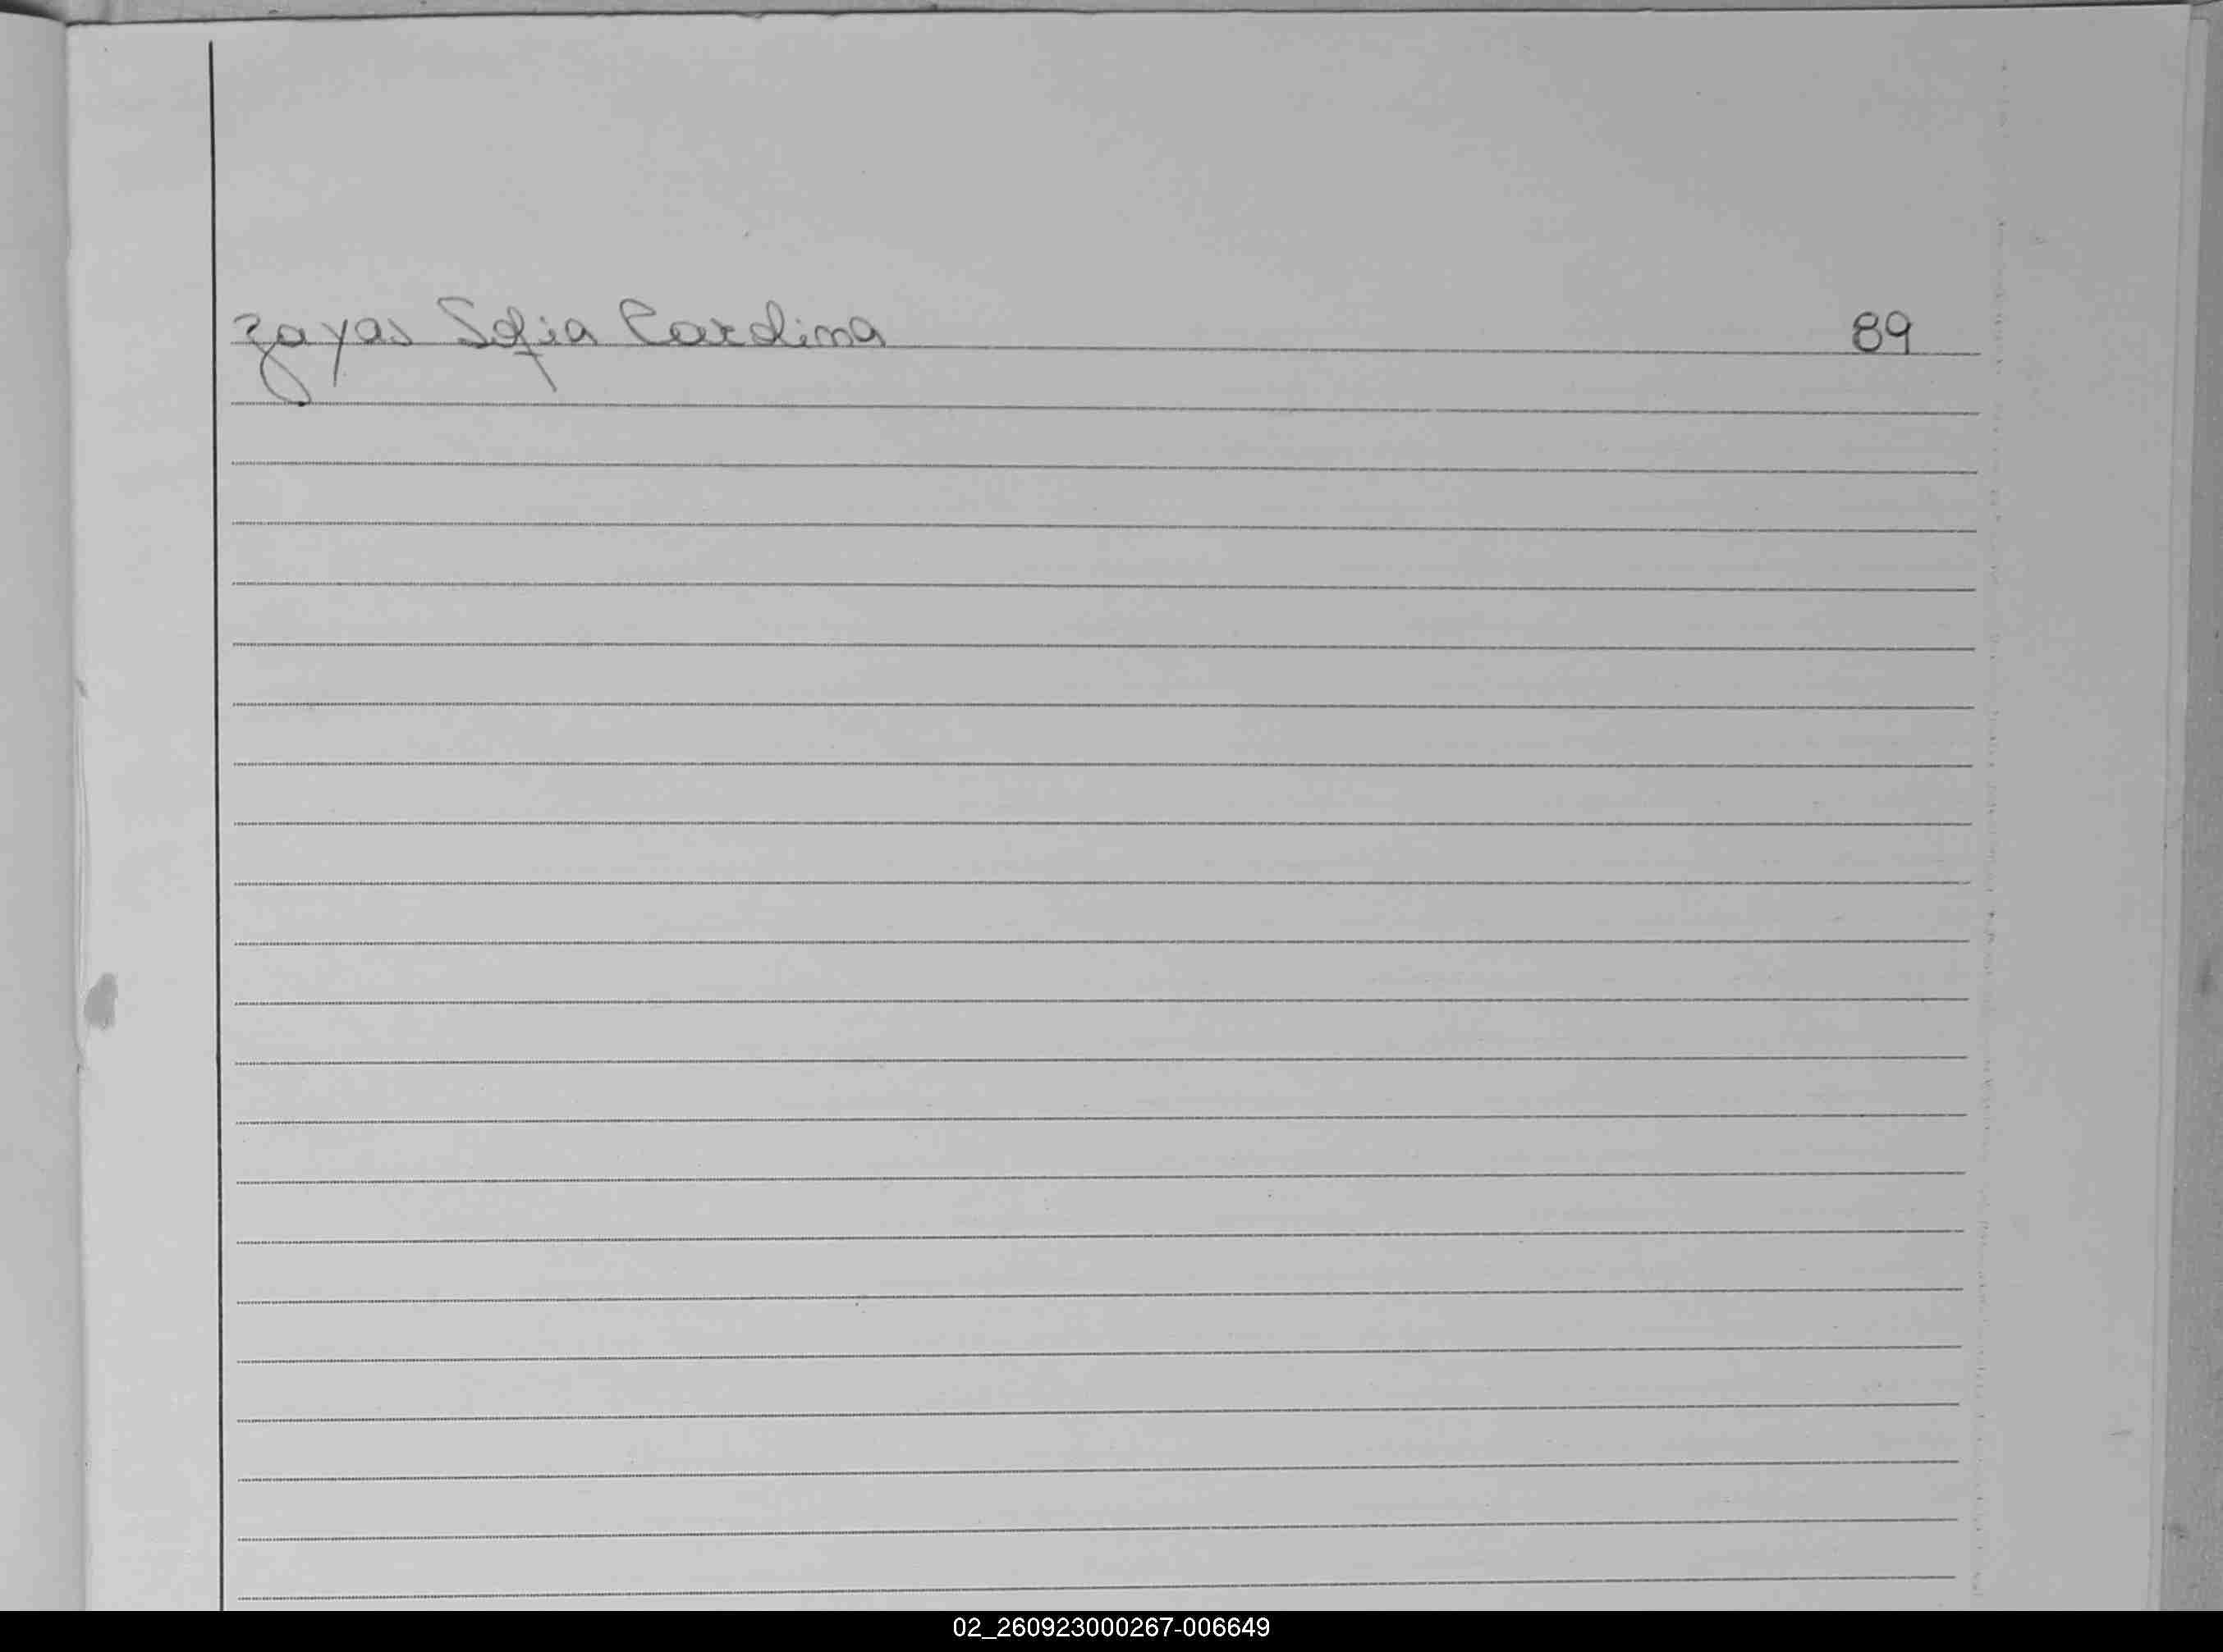 Zayas Sofia Carolina 89
02_260923000267-006649